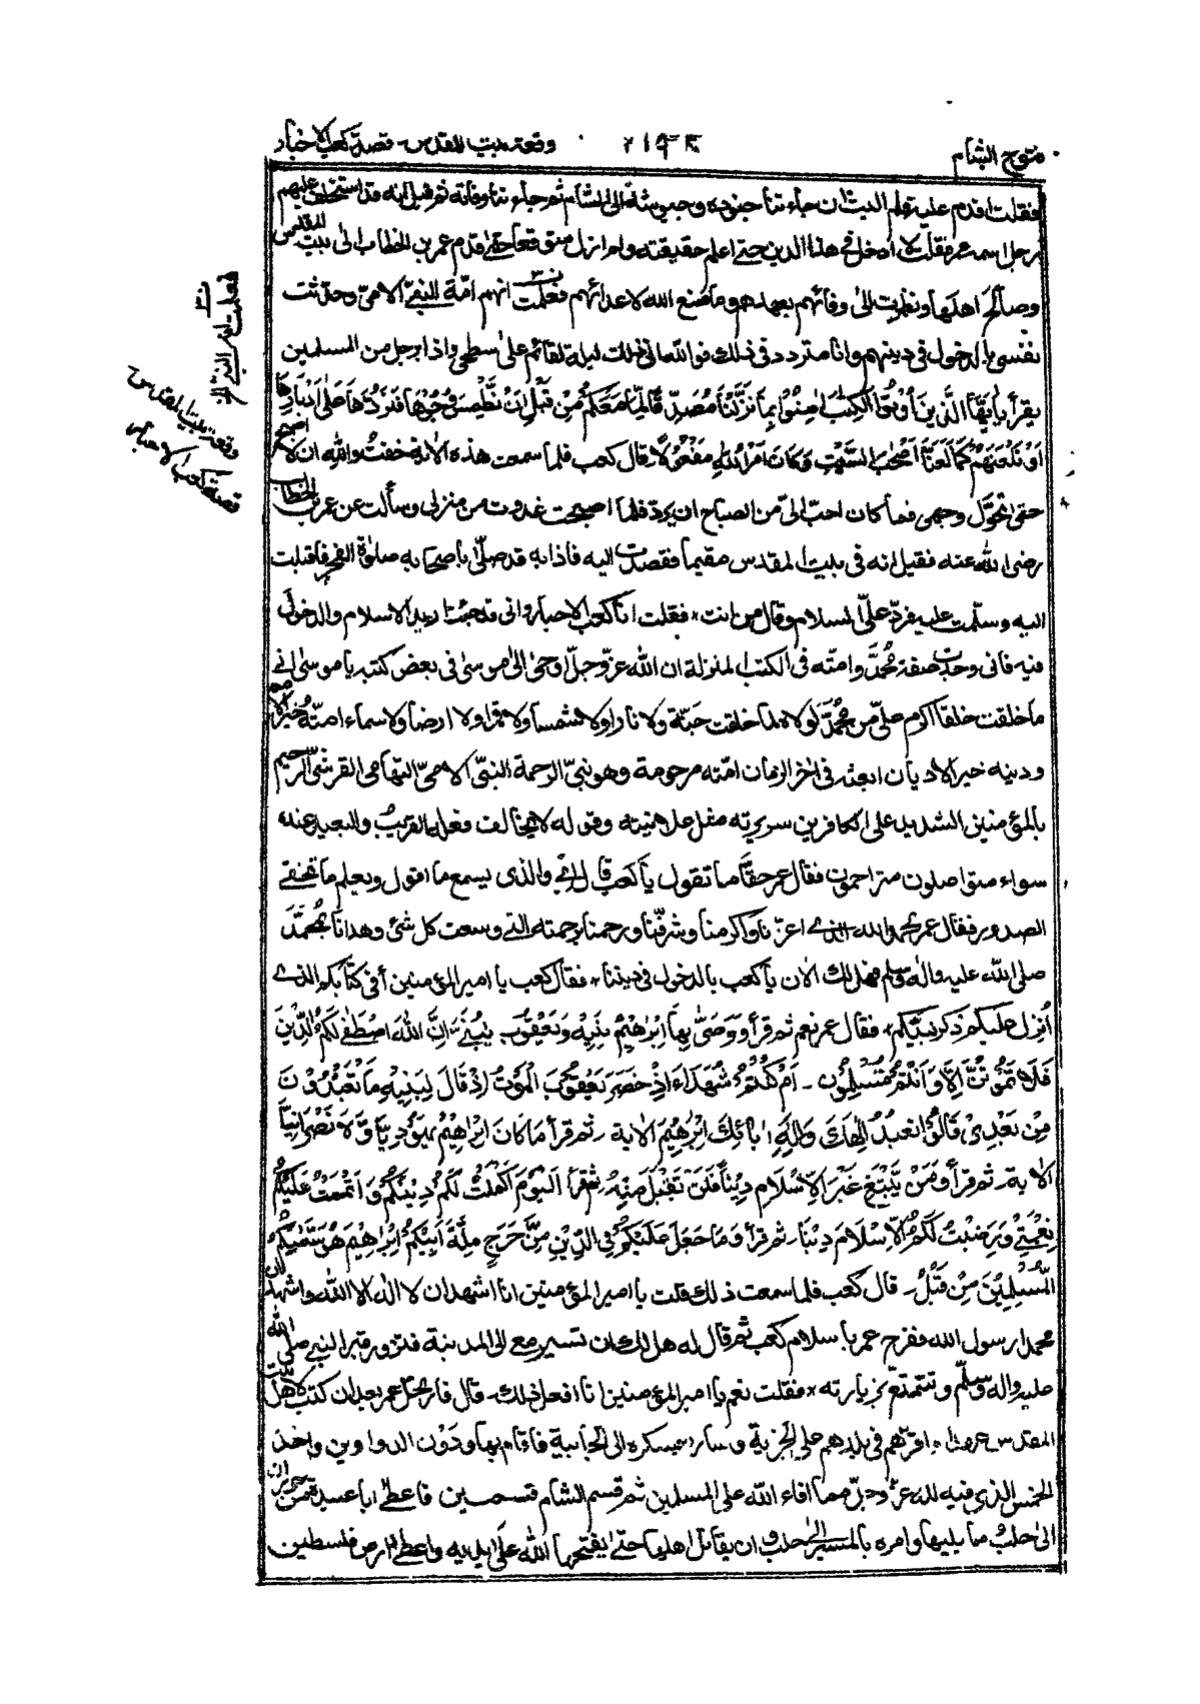 فتوح الشام
وقعة بيت المقدس - قصة كعب الاخبار
فقلت اقدم عليه فلم البث ان جاءتنا جنوده وجيوشه الى الشام ثم جاءتنا وفاته ثم قيل انه قد استخلف عليهم
رجل اسمه عمر فقلت لا ادخل فى هذا الدين حتى اعلم حقيقته ولم ازل متوقعا حتى قدم عمر بن الخطاب الى بيت المقدس
وصالح اهلها ونظرت الى وفائهم بعهدهم وما صنع الله لاعدائهم فعلمت انهم امّة النبىّ الامىّ وحدّثت
نفسى بالدخول فى دينهم وانا متردد فى ذلك فوالله انى ذات ليلة لقائم على سطحى واذا برجل من المسلمين
يقرأ يٰاَيُّهَا الَّذِيْنَ اُوْتُوا الْكِتٰبَ اٰمِنُوْا بِمَا نَزَّلْنَا مُصَدِّقًا لِّمَا مَعَكُمْ مِنْ قَبْلِ اَنْ نَّطْمِسَ وُجُوْهًا فَنَرُدَّهَا عَلٰى اَدْبَارِهَا
اَوْ نَلْعَنَهُمْ كَمَا لَعَنَّا اَصْحٰبَ السَّبْتِ وَكَانَ اَمْرُ اللهِ مَفْعُوْلًا قال كعب فلما سمعت هذه الآية خفت والله ان لا اصبح
حتى يتحوّل وجهى فما كان احبّ الىّ من الصباح ان يرد فلما اصبحت غدوت من منزلى وسألت عن عمر بن الخطاب
رضى الله عنه فقيل انه فى بيت المقدس مقيما فقصدت اليه فاذا به قد صلّى باصحابه صلوة الفجر فاقبلت
اليه وسلمت عليه فردّ علىّ السلام وقال من انت فقلت انا كعب الاحبار وانى قد جئت اريد الاسلام والدخول
فيه فانى وجدت صفة محمّد وامته فى الكتب المنزلة ان الله عزّ وجلّ اوحى الى موسى فى بعض كتبه يا موسى انى
ما خلقت خلقا اكرم علىّ من محمّد لولاه لما خلقت جنّة ولا نارا ولا شمسا ولا قمرا ولا ارضا ولا سماء امته خير الامم
ودينه خير الاديان ابعثه فى آخر الزمان امّته مرحومة وهو نبىّ الرحمة النبىّ الامىّ التهامى القرشىّ الرحيم
بالمؤمنين الشديد على الكافرين سريرته مثل علانيته وقوله لا يخالف فعله القريب والبعيد عنده
سواء متواصلون متراحمون فقال عمر حقّا ما تقول يا كعب قال اى والذى يسمع ما اقول ويعلم ما تخفى
الصدور فقال عمر الحمد لله الذى اعزّنا واكرمنا وشرّفنا ورحمنا برحمته التى وسعت كل شئ وهدانا بمحمّد
صلى الله عليه واله وسلم فهل لك الآن يا كعب بالدخول فى ديننا فقال كعب يا امير المؤمنين أفى كتابكم الذى
اُنزل عليكم ذكر نبيّكم فقال عمر نعم ثم قرأ وَوَصّٰى بِهَا اِبْرٰهِيْمُ بَنِيْهِ وَيَعْقُوْبُ يٰبَنِىَّ اِنَّ اللهَ اصْطَفٰى لَكُمُ الدِّيْنَ
فَلَا تَمُوْتُنَّ اِلَّا وَاَنْتُمْ مُّسْلِمُوْنَ - اَمْ كُنْتُمْ شُهَدَاءَ اِذْ حَضَرَ يَعْقُوْبَ الْمَوْتُ اِذْ قَالَ لِبَنِيْهِ مَا تَعْبُدُوْنَ
مِنْ بَعْدِىْ قَالُوْا نَعْبُدُ اِلٰهَكَ وَاِلٰهَ اٰبَائِكَ اِبْرٰهِيْمَ الاية - ثم قرأ مَا كَانَ اِبْرٰهِيْمُ يَهُوْدِيًّا وَّلَا نَصْرَانِيًّا
الاية - ثم قرأ وَمَنْ يَّبْتَغِ غَيْرَ الْاِسْلَامِ دِيْنًا فَلَنْ يُّقْبَلَ مِنْهُ ثم قرأ اَلْيَوْمَ اَكْمَلْتُ لَكُمْ دِيْنَكُمْ وَاَتْمَمْتُ عَلَيْكُمْ
نِعْمَتِىْ وَرَضِيْتُ لَكُمُ الْاِسْلَامَ دِيْنًا - ثم قرأ وَمَا جَعَلَ عَلَيْكُمْ فِى الدِّيْنِ مِنْ حَرَجٍ مِلَّةَ اَبِيْكُمْ اِبْرٰهِيْمَ هُوَ سَمّٰىكُمُ
الْمُسْلِمِيْنَ مِنْ قَبْلُ - قال كعب فلما سمعت ذلك قلت يا امير المؤمنين انا اشهد ان لا اله الا الله واشهد ان
محمدا رسول الله ففرح عمر باسلام كعب ثم قال له هل لك ان تسير مع الى المدينة فتزور قبر النبى صلى الله
عليه واله وسلّم وتتمتع بزيارته فقلت نعم يا امير المؤمنين انا افعل ذلك قال فارتحل عمر بعد ان كتب لاهل بيت
المقدس عهدا واقرّهم فى بلدهم على الجزية وسار بعسكره الى الجابية فاقام بها ودوّن الدواوين واخذ
الخمس الذى فيه لله عزّ وجلّ مما افاء الله على المسلمين ثم قسم الشام قسمين فاعطى ابا عبيدة من حوران
الى حلب وما يليها وامره بالمسير الى حلب وان يقاتل اهلها حتى يفتحها الله على يديه واعطى ارض فلسطين
فعلمت انهم النبى الخ
وقعة بيت المقدس
قصة كعب الاحبار